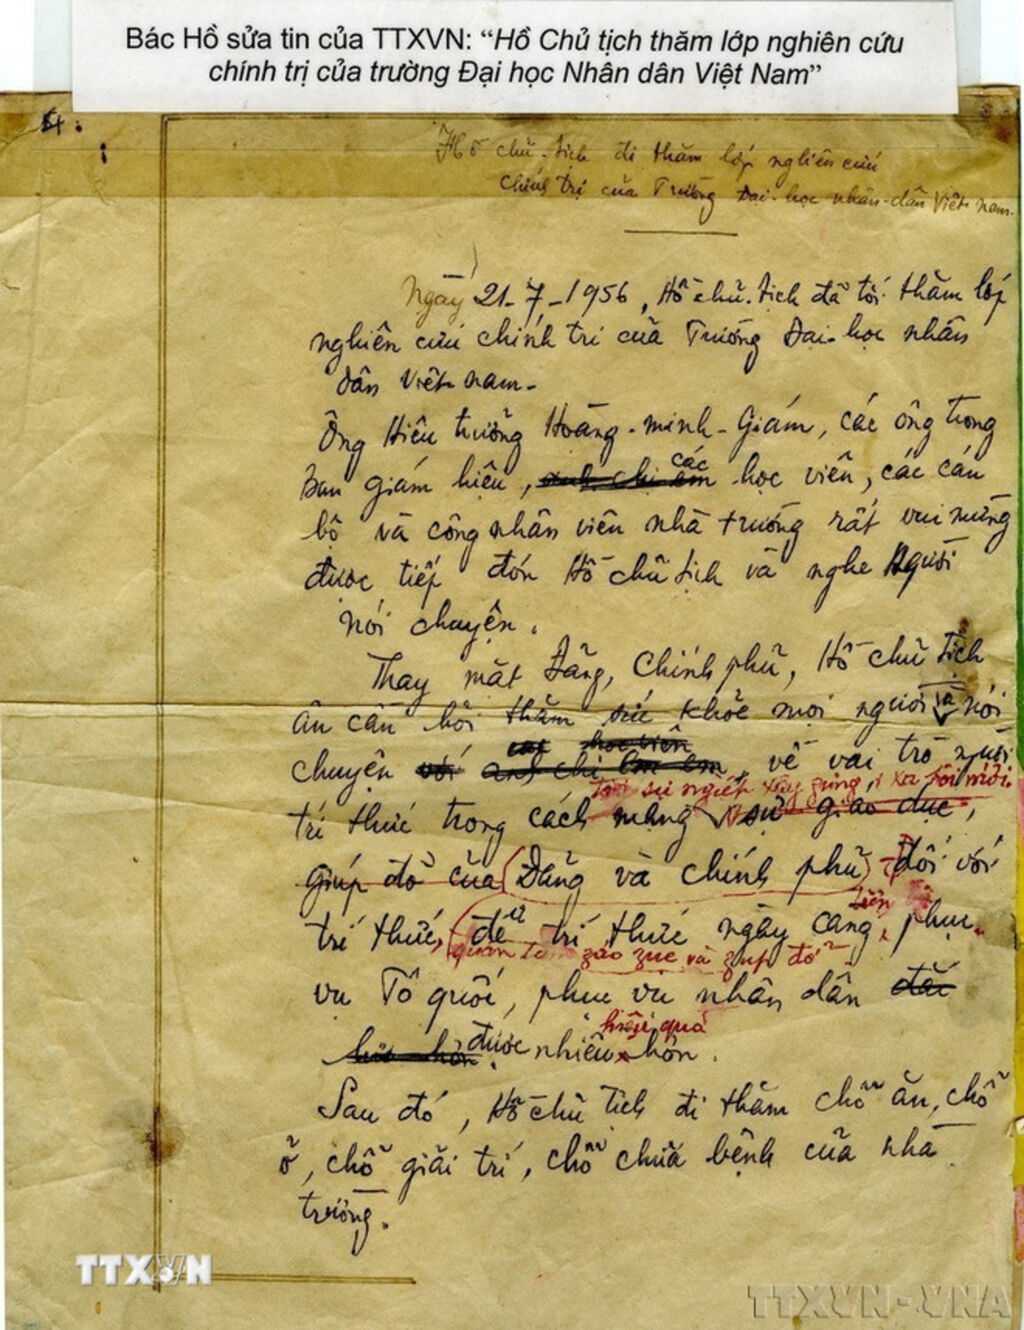 Bác Hồ sửa tin của TTXVN: “Hồ Chủ tịch thăm lớp nghiên cứu
chính trị của trường Đại học Nhân dân Việt Nam”
Hồ chủ-tịch đi thăm lớp nghiên cứu
chính trị của Trường Đại-học nhân-dân Việt-nam.
Ngày 21-7-1956, Hồ chủ-tịch đã tới thăm lớp
nghiên cứu chính trị của Trường Đại-học nhân
dân Việt-nam-
Ông Hiệu trưởng Hoàng-minh-Giám, các ông trong
các
ban giám hiệu, anh chị em học viên, các cán
bộ và công nhân viên nhà trường rất vui mừng
được tiếp đón Hồ chủ tịch và nghe Người
nói chuyện.
Thay mặt Đảng, Chính phủ, Hồ chủ tịch
và
ân cần hỏi thăm sức khỏe mọi người nói
các học viên
chuyện với anh chị em, về vai trò người
tới sự nghiệp xây dựng xã hội mới
trí thức trong cách mạng sự giáo dục,
giúp đỡ của (Đảng và chính phủ) đối với
tiến bộ
trí thức, để trí thức ngày càng, phục
quan tâm záo zục và zúp đỡ
vụ Tổ quốc, phục vụ nhân dân đắc
hiệu quả
được nhiều hơn.
Sau đó, Hồ chủ tịch đi thăm chỗ ăn, chỗ
ở, chỗ giải trí, chỗ chữa bệnh của nhà
trường.
TTXVN
TTXVN-VNA